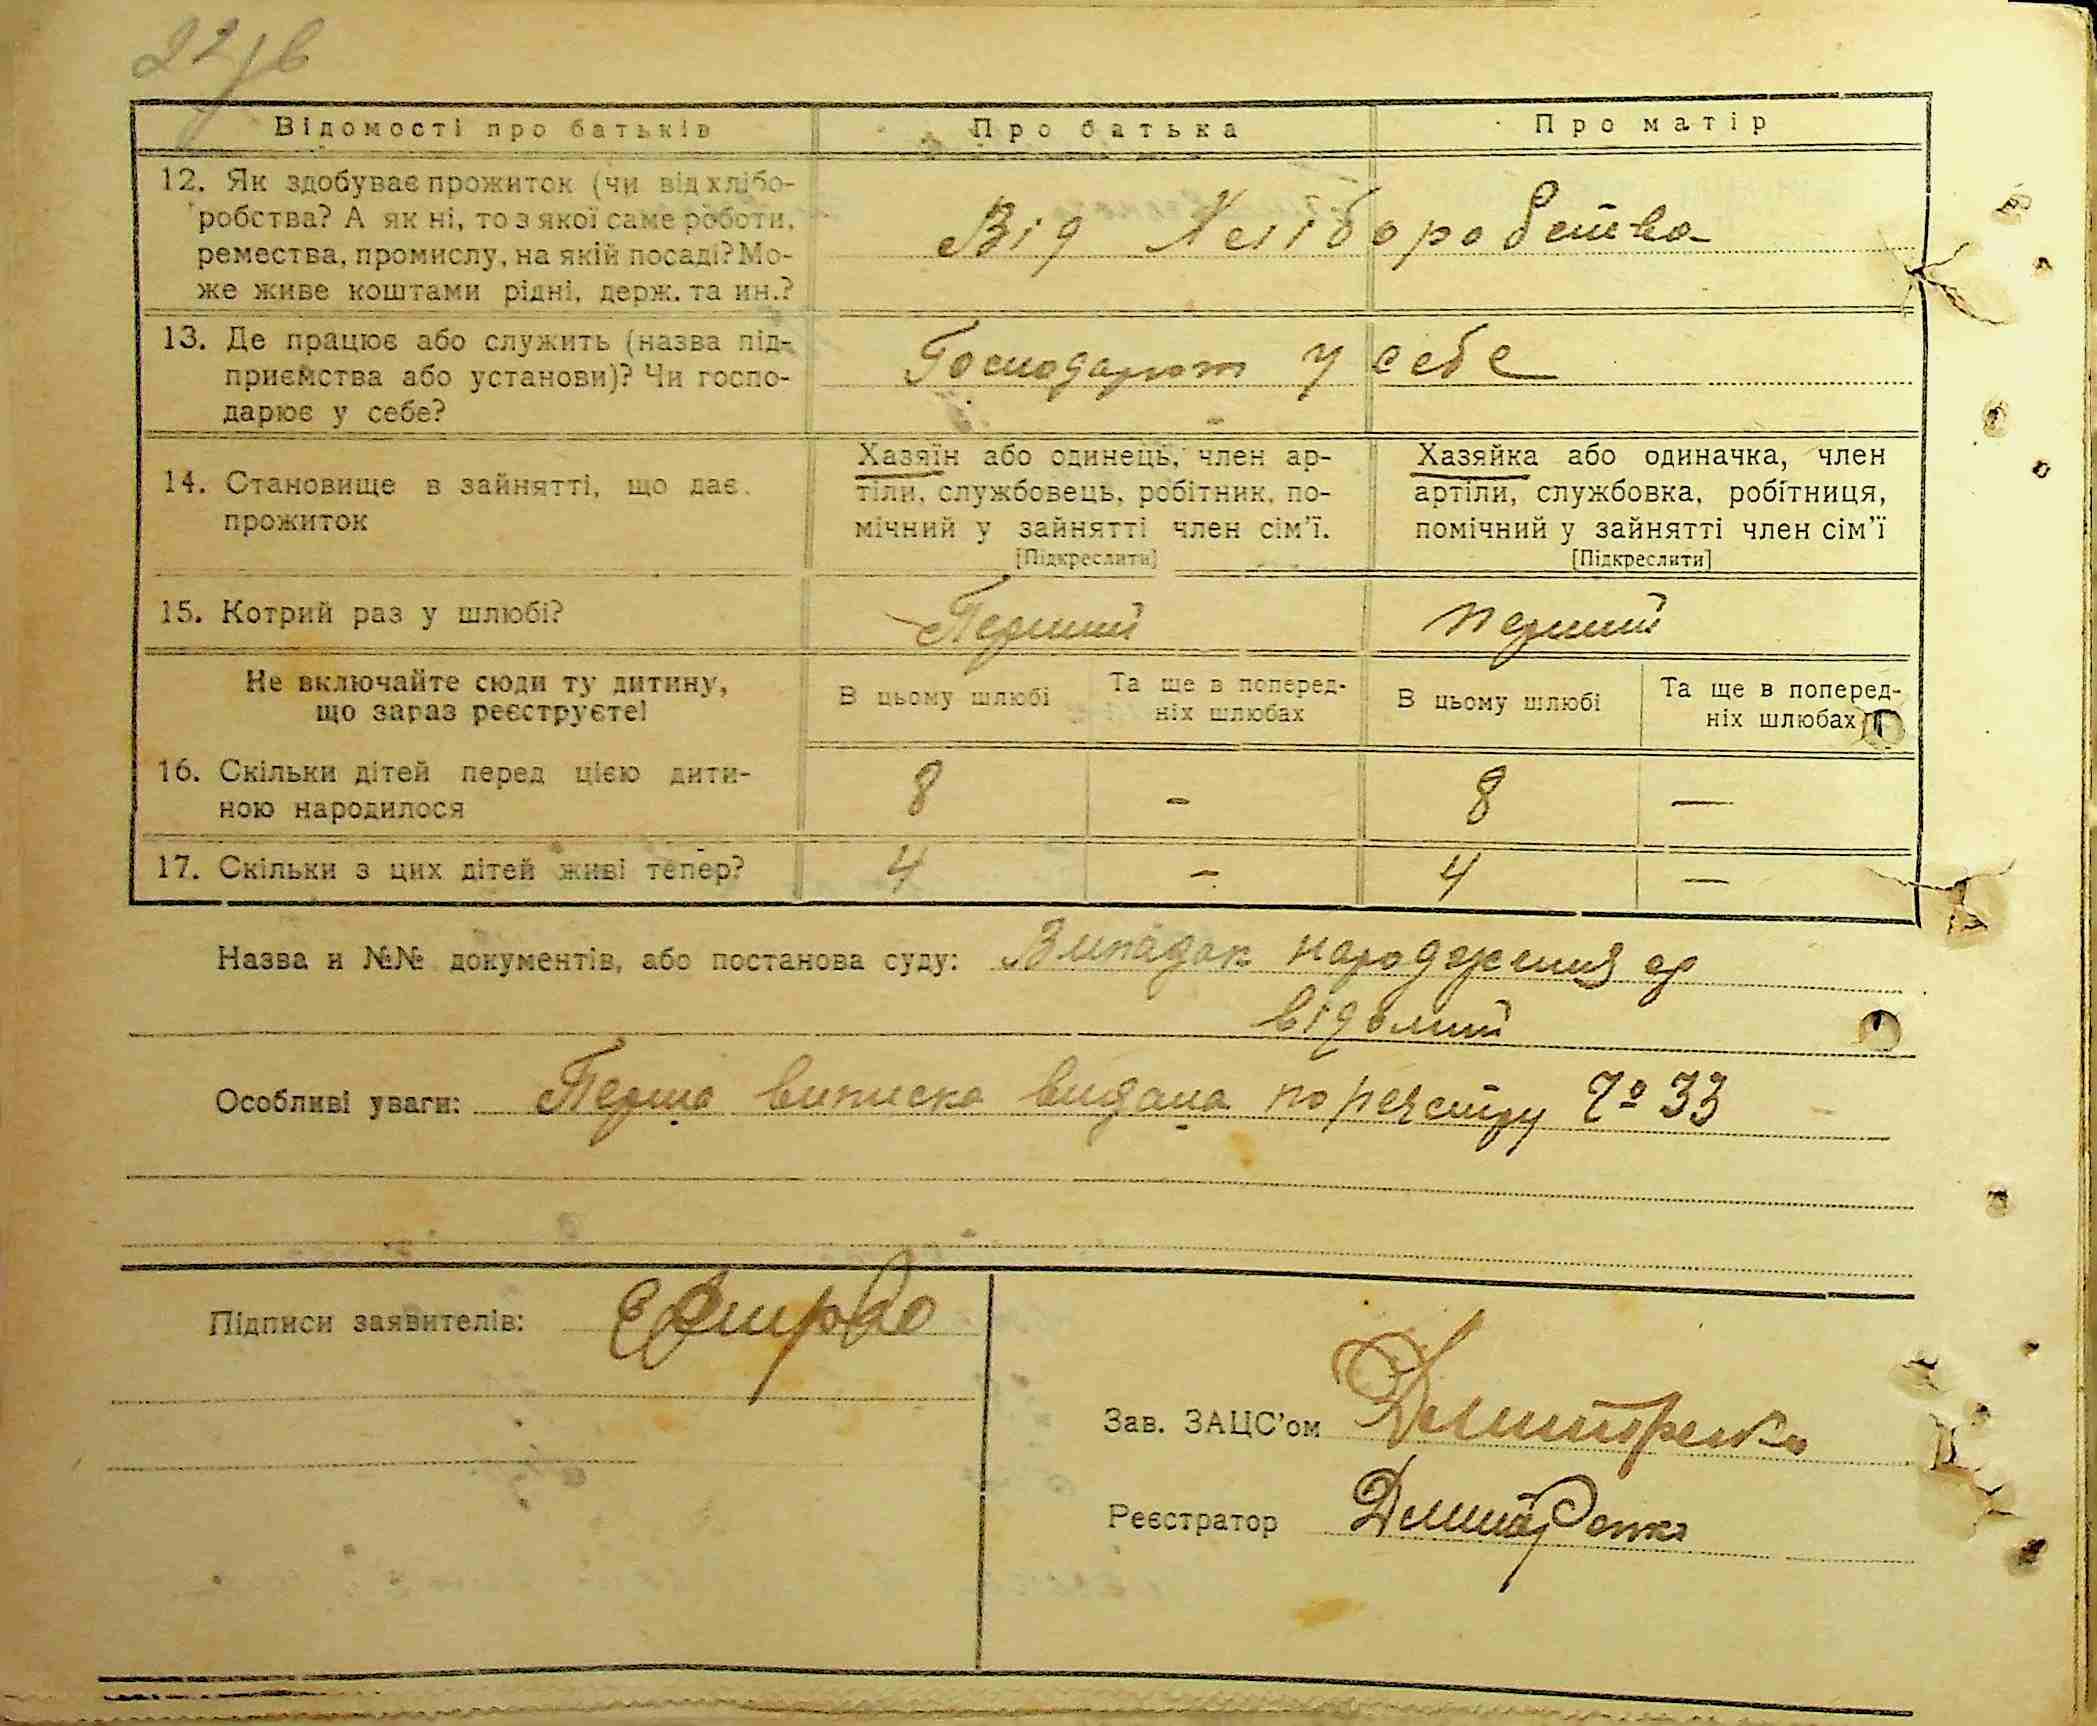 Відомості про батьків
Про батька
Про матір
12. Як здобуває прожиток (чи від хлібо-
робства? А як ні, то з якої саме роботи,
ремества, промислу, на якій посаді? Мо-
же живе коштами рідні, держ. та ин.?
Від Хліборобства
13. Де працює або служить (назва під-
приємства або установи)? Чи госпо-
дарює у себе?
Господарют у себе
14. Становище в зайнятті, що дає
прожиток
Хазяїн або одинець, член ар-
тіли, службовець, робітник, по-
мічний у зайнятті член сім'ї.
[Підкреслити]
Хазяйка або одиначка, член
артіли, службовка, робітниця,
помічний у зайнятті член сім'ї
[Підкреслити]
15. Котрий раз у шлюбі?
Перший
перший
Не включайте сюди ту дитину,
що зараз реєструєте!
В цьому шлюбі
Та ще в поперед-
ніх шлюбах
В цьому шлюбі
Та ще в поперед-
ніх шлюбах
16. Скільки дітей перед цією дити-
ною народилося
8 - 8 —
17. Скільки з цих дітей живі тепер?
4 - 4 —
Назва и №№ документів, або постанова суду: Випадок народження
відомий
Особливі уваги: Перша виписка видана по реєстру № 33
Підписи заявителів:
Зав. ЗАЦС'ом Дмитренко
Реєстратор Дмитренко